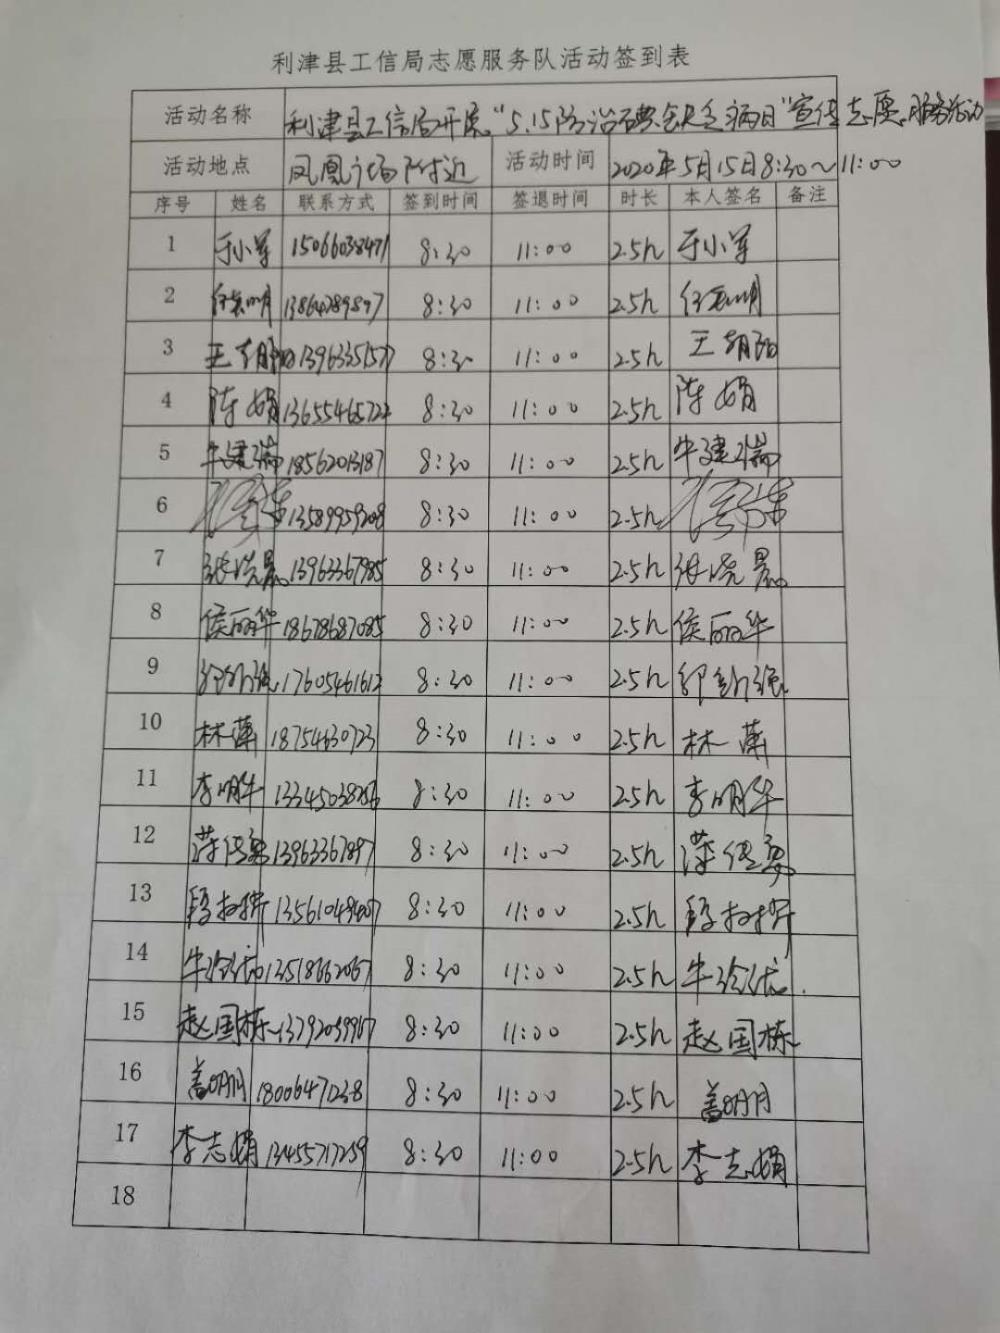 利津县工信局志愿服务队活动签到表
活动名称 利津县工信局开展“5.15防治碘缺乏病日”宣传志愿服务活动
活动地点 凤凰广场附近 活动时间 2020年5月15日8:30~11:00
序号 姓名 联系方式 签到时间 签退时间 时长 本人签名 备注
1 于小军 15066038471 8:30 11:00 2.5h 于小军
2 13864289897 8:30 11:00 2.5h
3 王朝阳 13963351577 8:30 11:00 2.5h 王朝阳
4 陈娟 13655465722 8:30 11:00 2.5h 陈娟
5 牛建瑞 18562013187 8:30 11:00 2.5h 牛建瑞
6 13589959208 8:30 11:00 2.5h
7 张晓晨 13963367985 8:30 11:00 2.5h 张晓晨
8 侯丽华 18678687085 8:30 11:00 2.5h 侯丽华
9 17605461612 8:30 11:00 2.5h
10 林萍 18754630723 8:30 11:00 2.5h 林萍
11 李明华 8:30 11:00 2.5h 李明华
12 13963367897 8:30 11:00 2.5h
13 8:30 11:00 2.5h
14 8:30 11:00 2.5h
15 赵国栋 8:30 11:00 2.5h 赵国栋
16 盖明月 18006471238 8:30 11:00 2.5h 盖明月
17 李志娟 13455717259 8:30 11:00 2.5h 李志娟
18